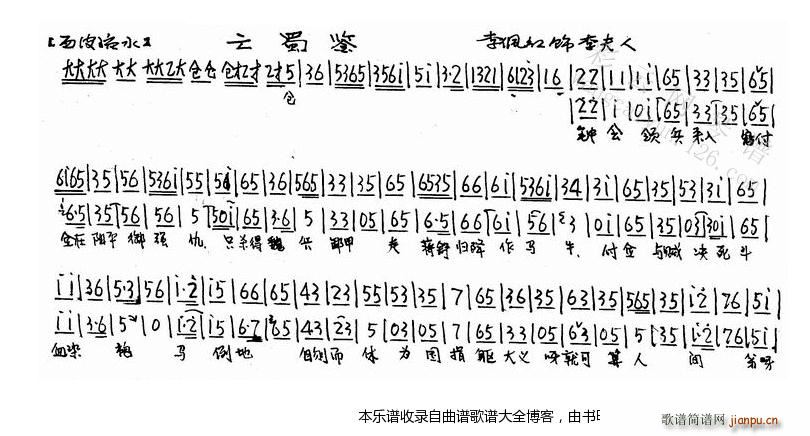 【西皮流水】 亡蜀鉴 李佩红饰李夫人
大大大大 大大 大大乙大 仓仓 仓才乙才 乙才5|36|5365|356i|5i|3·2|1321|6123|16|22|11|1i|65|33|35|65
仓 |22|1|0i|65|33|35|65
钟会领兵来入寇付
6i65|35|56|536i|55|56|65|36|565|33|35|65|6535|66|6i|536i|34|3i|65|35|53|3i|65
6·5|35|56|56|5|50i|65|3·6|5|33|05|65|6·5|66|6i|56|3|0i|65|35|03|30i|65
金在阳平御强仇只杀得魏兵卸甲走蒋舒归降作马牛付金与贼决死斗
ii|36|5·3|56|i·2|i5|66|65|43|23|55|53|35|7|65|36|35|63|35|565|35|i·2|76|5i
ii|3·6|5|0|i·2|i5|6·7|65|43|23|5|03|05|7|65|33|05|63|05|5|35|i·2|76|5i
血染袍马倒地自刎而休为国捐躯大义
本乐谱收录自曲谱歌谱大全博客，由书
歌谱简谱网
jianpu.cn